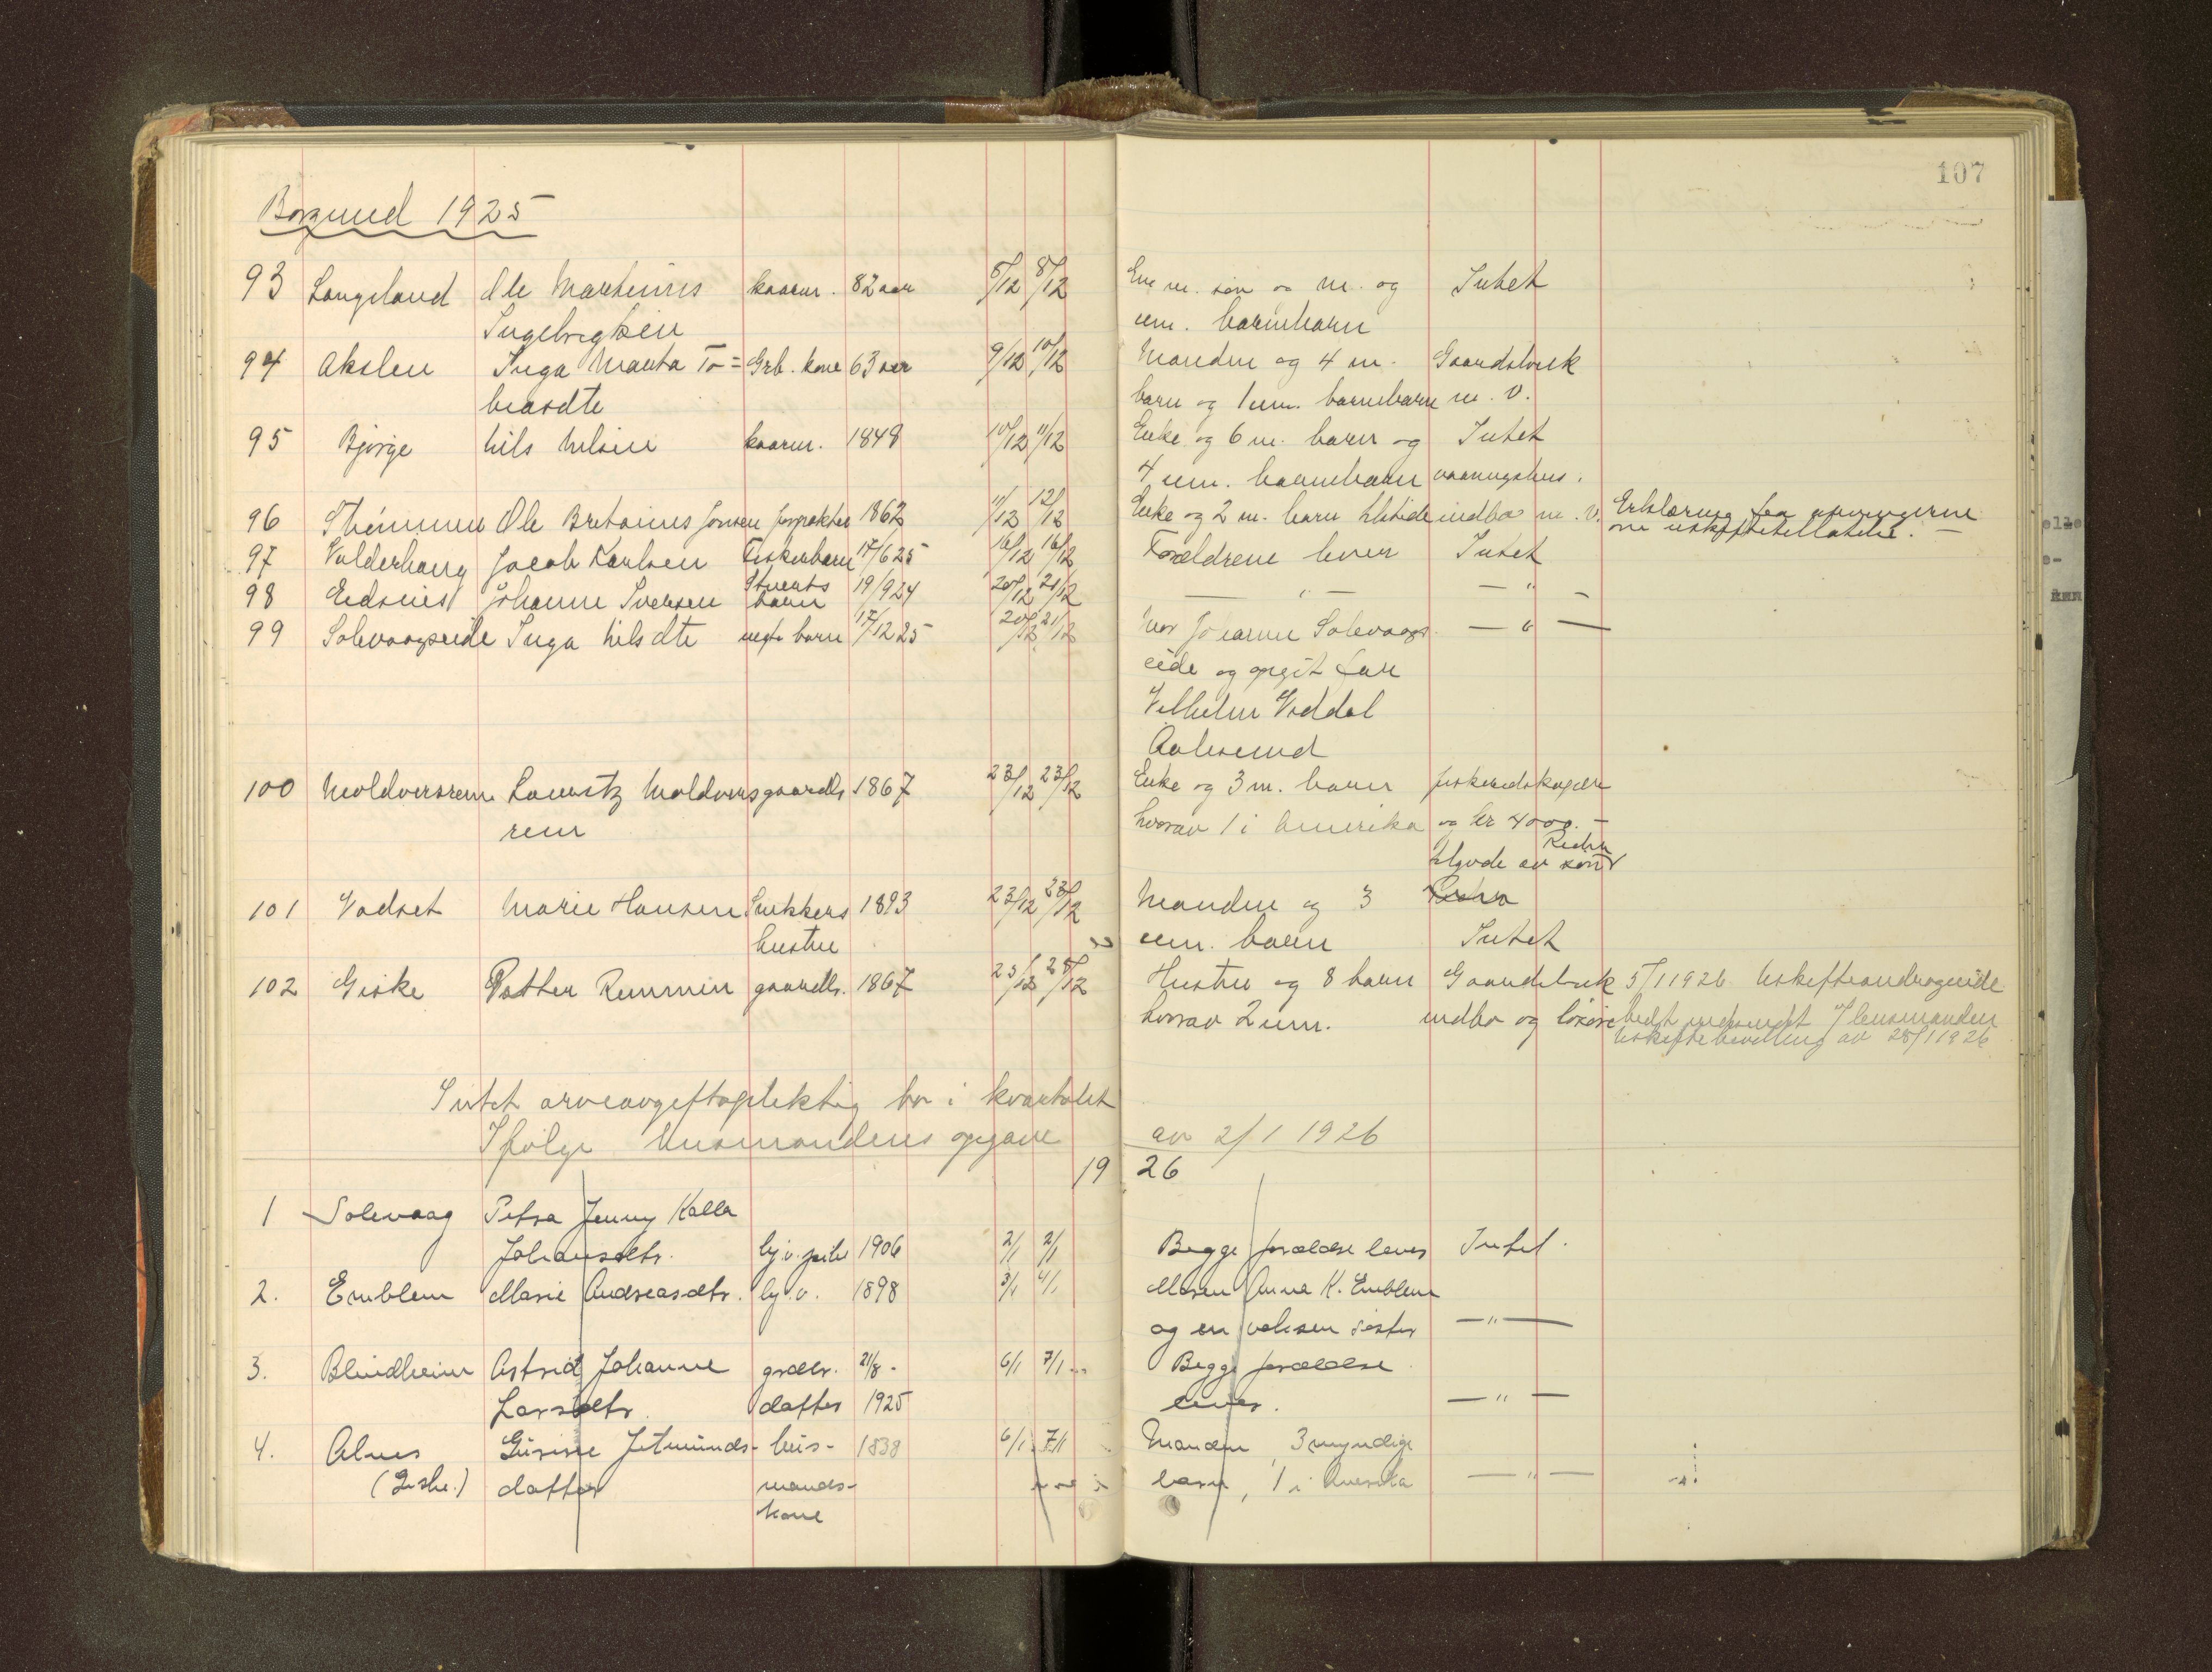 107
Borgund 1925
93 Langeland Ole Martinius kaarm. 82 aar 5/12 8/12 En m. søn og m. og Intet
Ingebrigtsen um. barnebarn
94 Akslen Inga Marta To= Grb. kone 63 aar 9/12 10/12 Manden og 4 m. Gaardsbruk
biasdte barn og 1 um. barnebarn m. v.
95 Bjørge Nils Nilsen kaarm. 1848 10/12 11/12 Enke og 6 m. barn og Intet
4 um. barnebarn vaaningshus.
96 Ole Bretainus Jonsen 1862 11/12 12/12 Enke og 2 m. barn tilstede indbo m. v. Erklæring fra arvingerne
om uskiftetillatelse. —
97 Valderhaug Jacob Karlsen Fiskerbarn 17/6 25 16/12 16/12 Forældrene lever Intet
98 Eidsnes Johanne Iversen Stuerts 19/9 24 20/12 21/12 — " — — " —
barn
99 Solevaagseide Inga Nilsdte uegte barn 17/12 25 20/12 21/12 Mor Johanne Solevaags — " —
eide og opgit far
Vilhelm Vaddal
Aalesund
100 Moldversrem Lauritz Moldvers gaardbr. 1867 23/12 23/12 Enke og 3 m. barn fiskeredskaper
rem hvorav 1 i Amerika og kr 4000. —
Reden
tilgode av
101 Vadset Marie Hansen Snekkers 1893 23/12 23/12 Manden og 3
hustru um. barn Intet
102 Giske Petter Remmin gaardbr. 1867 25/12 28/12 Hustru og 8 barn Gaardsbruk 5/1 1926 Uskifteandragende
hvorav 2 um. indbo og løsøre lensmanden
Uskiftebevilling av 28/1 1926
Intet arveavgiftspliktig bo i kvartalet
Ifølge lensmandens opgave av 2/1 1926
19 26
1 Solevaag Petra Jenny Kalla
Johansdtr. 1906 2/1 2/1 Begge forældre lever Intet.
2. Emblem Marie Andreasdtr. 1898 3/1 4/1 Moren Anne K. Emblem
og en voksen søster — " —
3. Blindheim Astrid Johanne grdbr. 21/8 - 6/1 7/1 Begge forældre
Larsdtr. datter 1925 lever. — " —
4. Alnes Jetmunds- hus- 1838 6/1 7/1 Manden, 3 myndige
(Giske.) datter mands- barn, 1 i Amerika — " —
kone